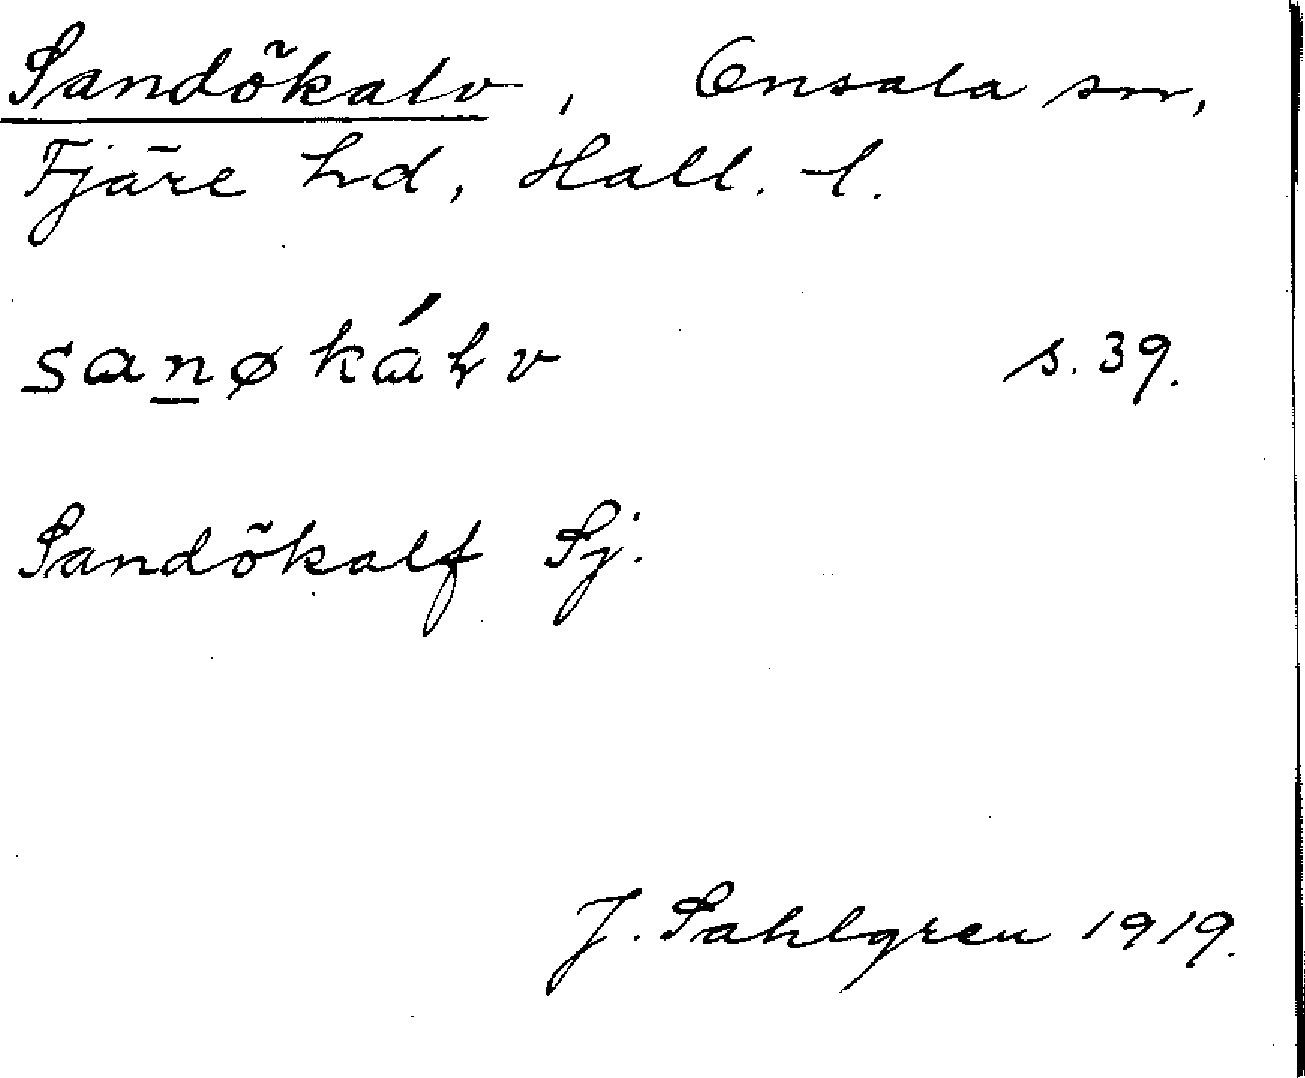 Sandökalv, Onsala sn,
Fjäre hd, Hall. l.
sanøkáłv s. 39.
Sandökalf Sj.
J. Sahlgren 1919.